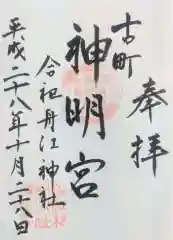 奉拝
古町
神明宮
合祀丹江神社
平成二十八年十月二十八日